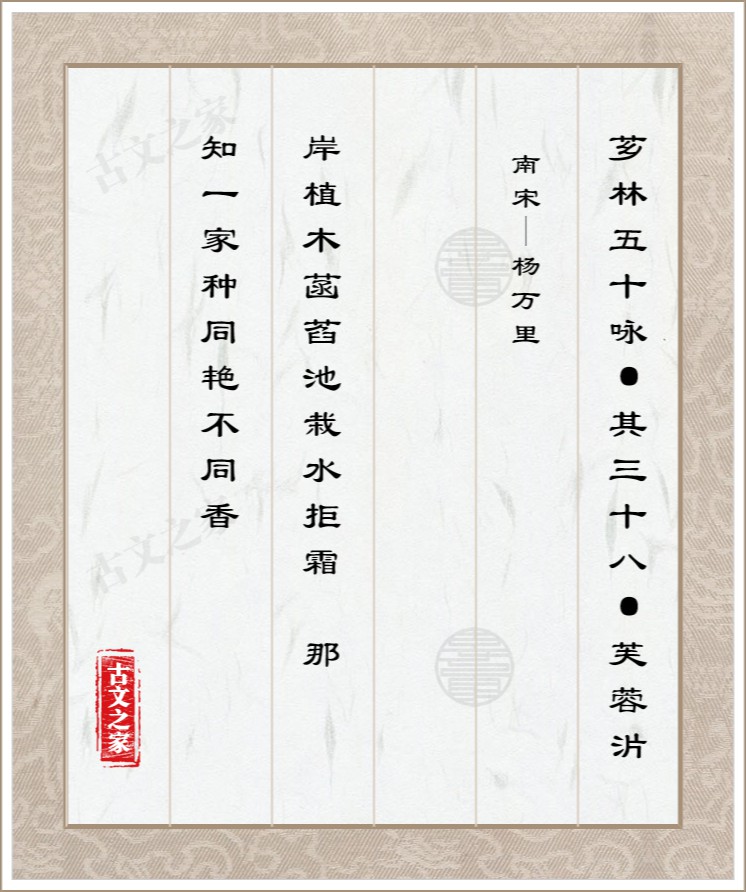 芗林五十咏●其三十八●芙蓉沜
南宋—杨万里
岸植木菡萏池栽水拒霜 那
知一家种同艳不同香
古文之家
古文之家
古文之家